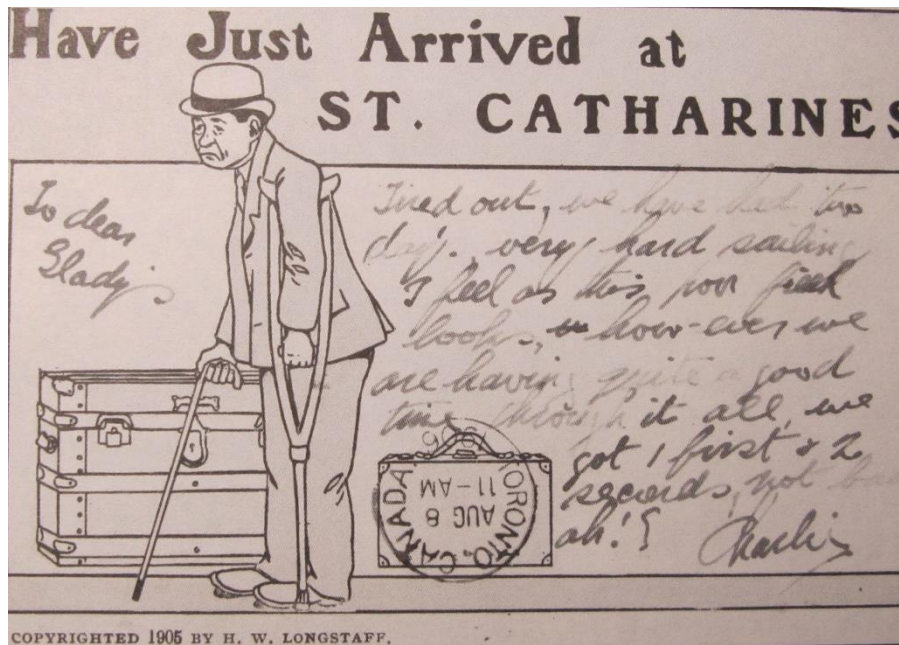 Have Just Arrived at
ST. CATHARINES
To dear
Gladys
Tired out, we have had two
days very hard sailing
I feel as this poor freak
looks, how-ever we
are having quite a good
time through it all, we
got 1 first & 2
seconds, not bad
ah!
Charlie
TORONTO, CANADA
AUG 8
11-AM
COPYRIGHTED 1905 BY H. W. LONGSTAFF.